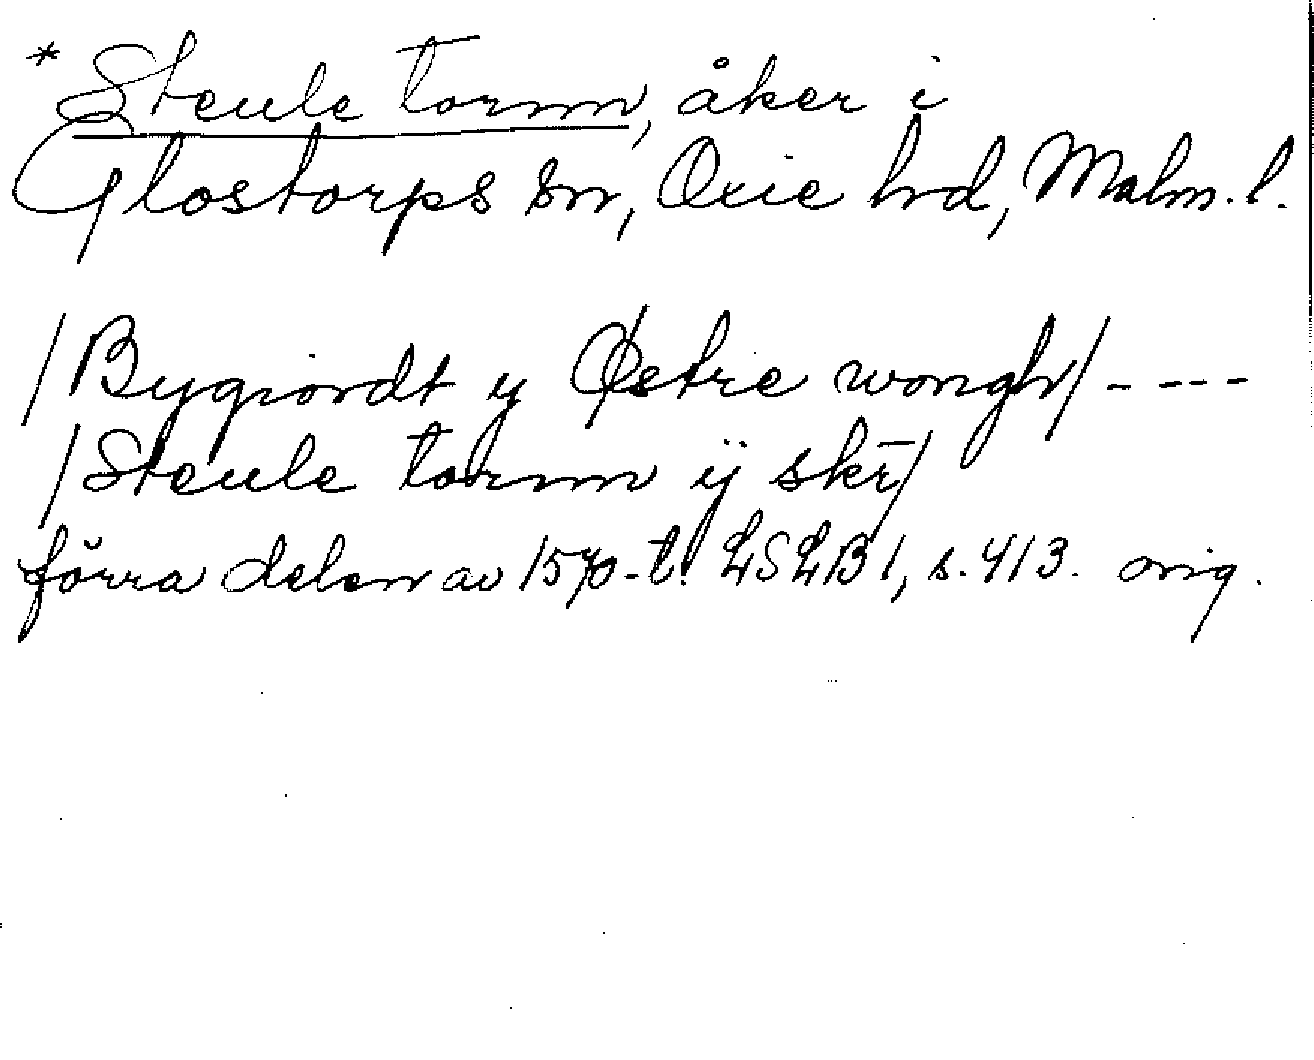 * Steule tornn, åker i
Glostorps sn, Oxie hd, Malm. l.
/Bygiordt y Østre wongh/ ----
/Steule tornn ÿ skr̄/
förra delen av 1570-t. LSLB 1, s. 413. orig.